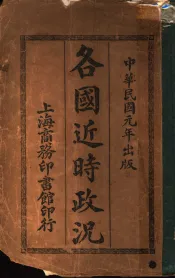 中華民國元年出版
各國近時政況
上海商務印書館印行